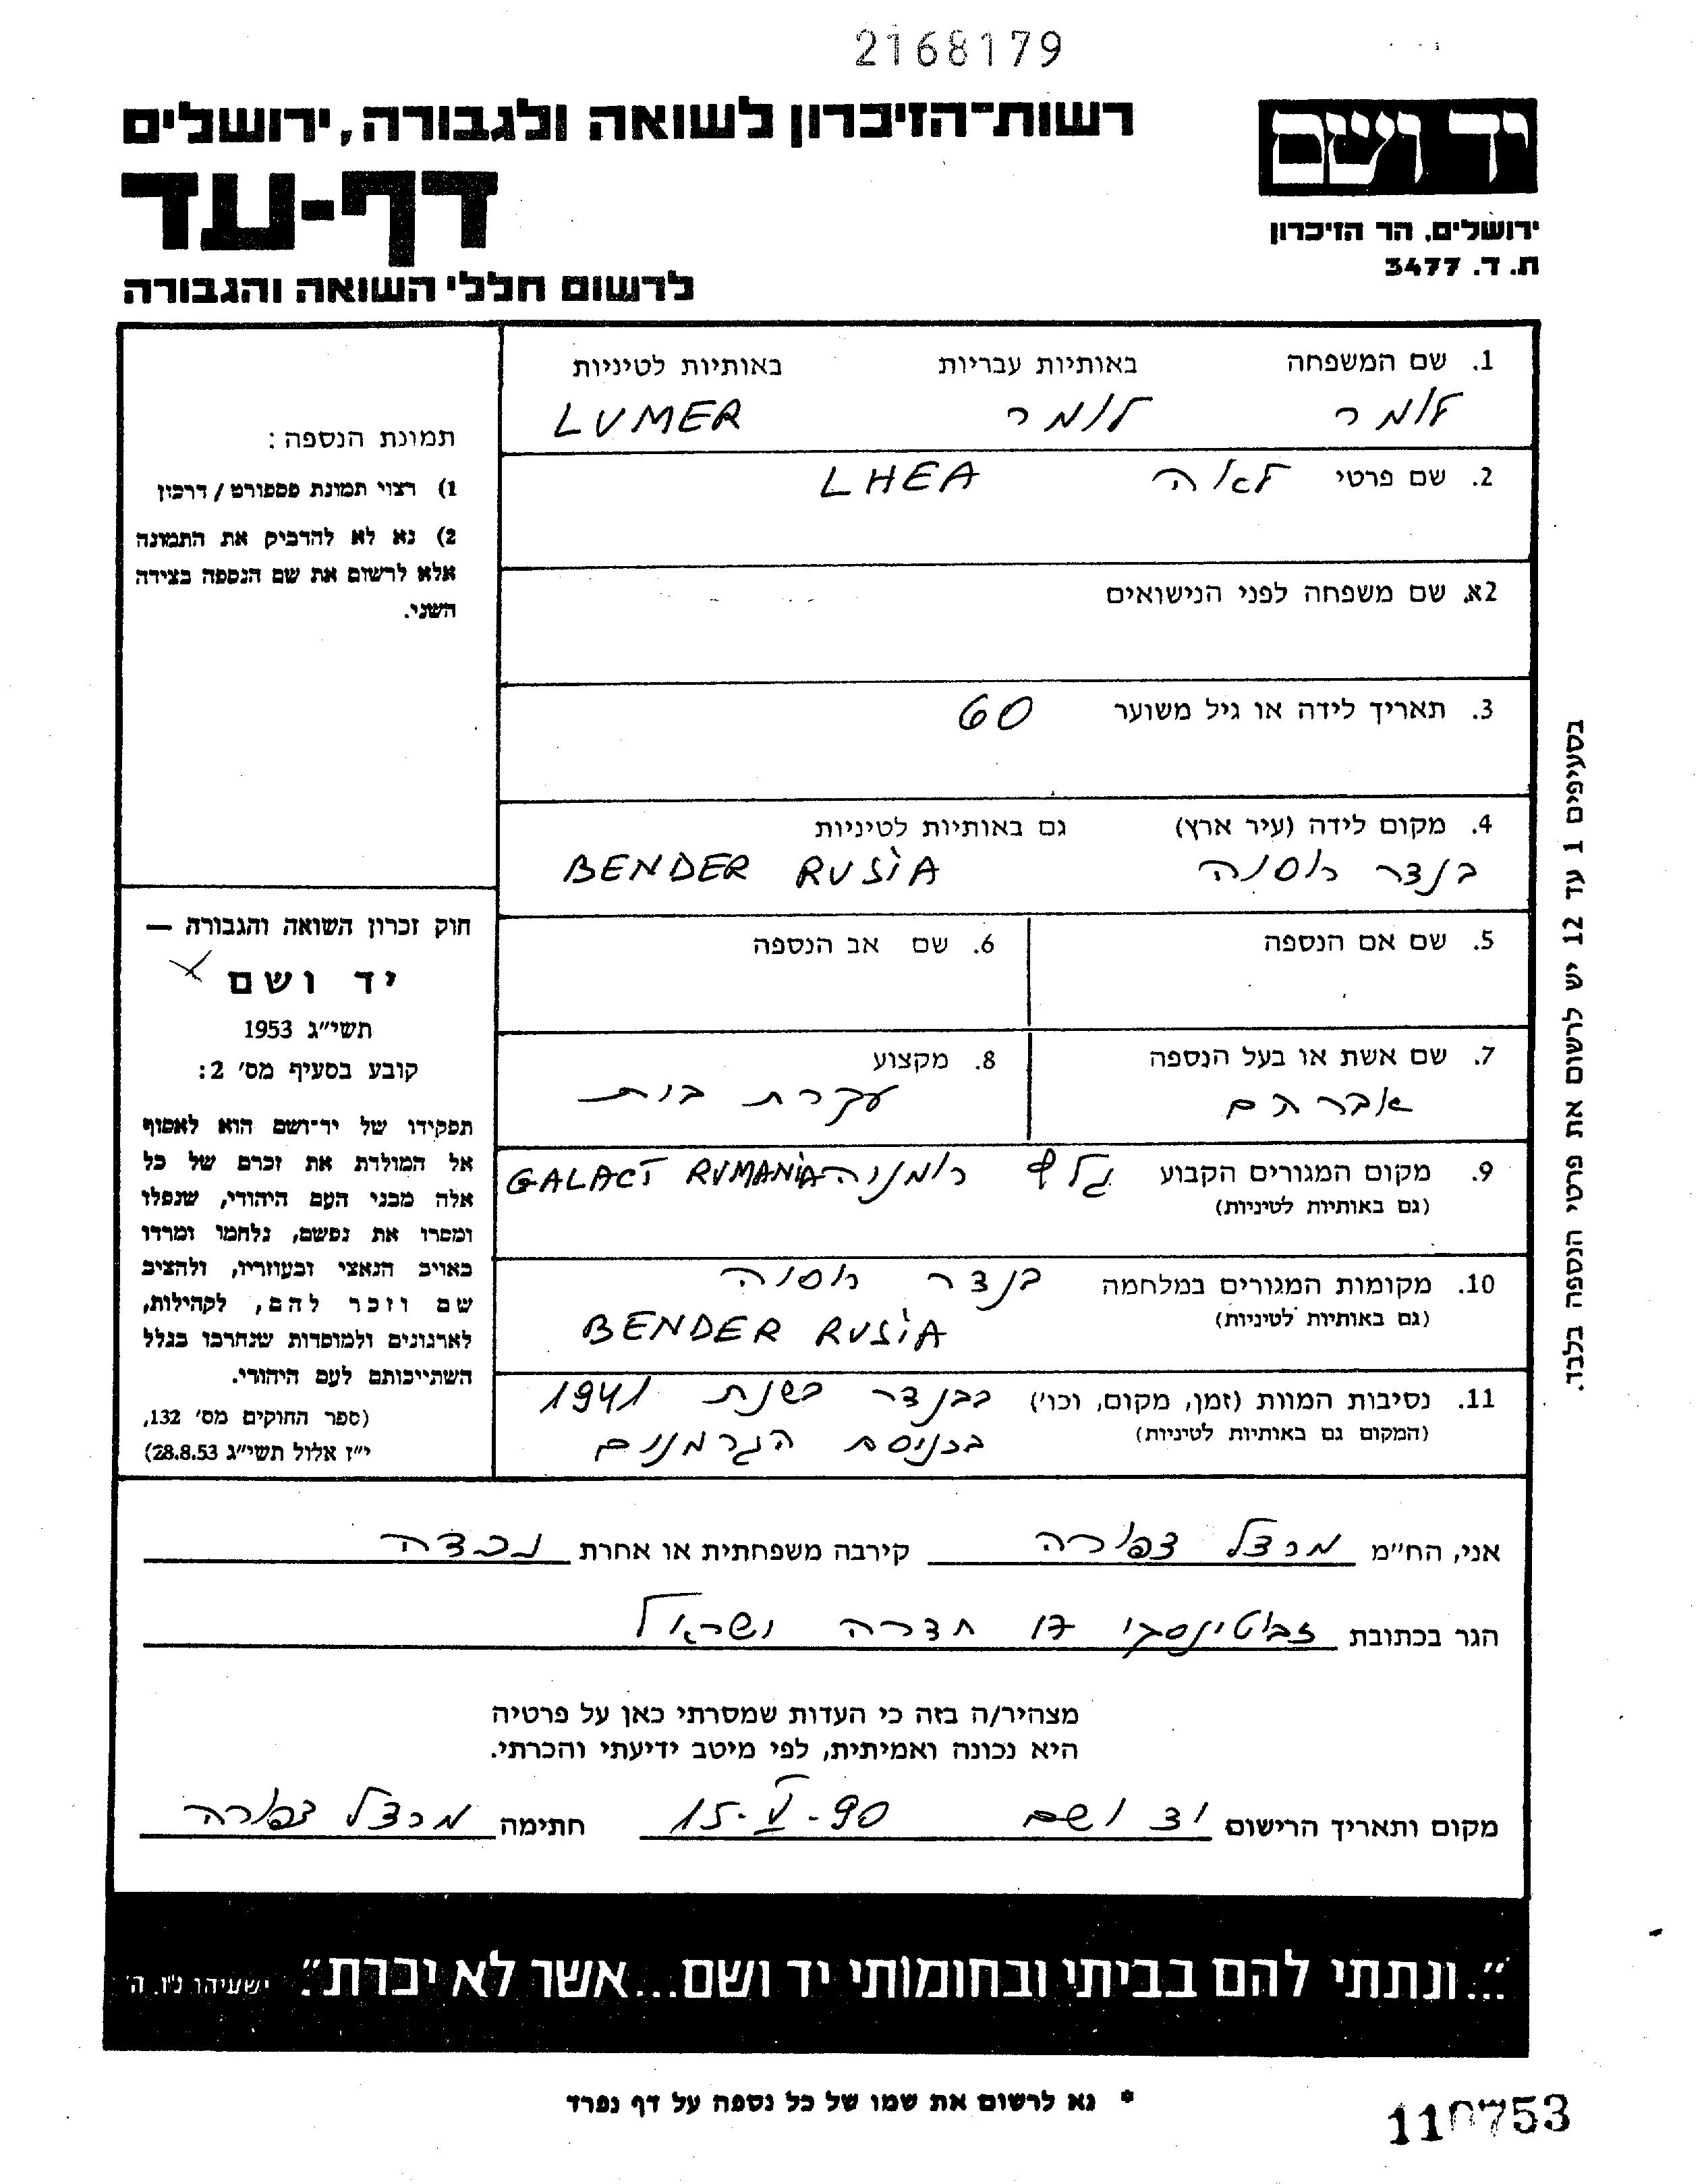 2168179
יד ושם
ירושלים, הר הזיכרון
ת. ד. 3477
רשות-הזיכרון לשואה ולגבורה, ירושלים
דף-עד
לרשום חללי השואה והגבורה
1. שם המשפחה באותיות עבריות באותיות לטיניות
לומר לומר LUMER
2. שם פרטי לאה LHEA
2א. שם משפחה לפני הנישואים
3. תאריך לידה או גיל משוער 60
4. מקום לידה (עיר ארץ) גם באותיות לטיניות
בנדר רוסיה BENDER RUSIA
5. שם אם הנספה 6. שם אב הנספה
7. שם אשת או בעל הנספה 8. מקצוע
אברהם עקרת בית
9. מקום המגורים הקבוע גלץ רומניה GALACT RUMANIA
(גם באותיות לטיניות)
10. מקומות המגורים במלחמה בנדר רוסיה
(גם באותיות לטיניות) BENDER RUSIA
11. נסיבות המוות (זמן, מקום, וכו') בבנדר בשנת 1941
(המקום גם באותיות לטיניות) בכניסת הגרמנים
תמונת הנספה:
1) רצוי תמונת פספורט / דרכון
2) נא לא להדביק את התמונה
אלא לרשום את שם הנספה בצידה
השני.
חוק זכרון השואה והגבורה —
יד ושם
תשי"ג 1953
קובע בסעיף מס' 2:
תפקידו של יד-ושם הוא לאסוף
אל המולדת את זכרם של כל
אלה מבני העם היהודי, שנפלו
ומסרו את נפשם, נלחמו ומרדו
באויב הנאצי ובעוזריו, ולהציב
שם וזכר להם, לקהילות,
לארגונים ולמוסדות שנחרבו בגלל
השתייכותם לעם היהודי.
(ספר החוקים מס' 132,
י"ז אלול תשי"ג 28.8.53)
בסעיפים 1 עד 12 יש לרשום את פרטי הנספה בלבד.
אני, הח"מ מרצל צפורה קירבה משפחתית או אחרת נכדה
הגר בכתובת ז'בוטינסקי 17 חדרה ישראל
מצהיר/ה בזה כי העדות שמסרתי כאן על פרטיה
היא נכונה ואמיתית, לפי מיטב ידיעתי והכרתי.
מקום ותאריך הרישום יד ושם 15-V-90 חתימה מרצל צפורה
"...ונתתי להם בביתי ובחומותי יד ושם...אשר לא יכרת". ישעיהו נ"ו, ה'
* נא לרשום את שמו של כל נספה על דף נפרד